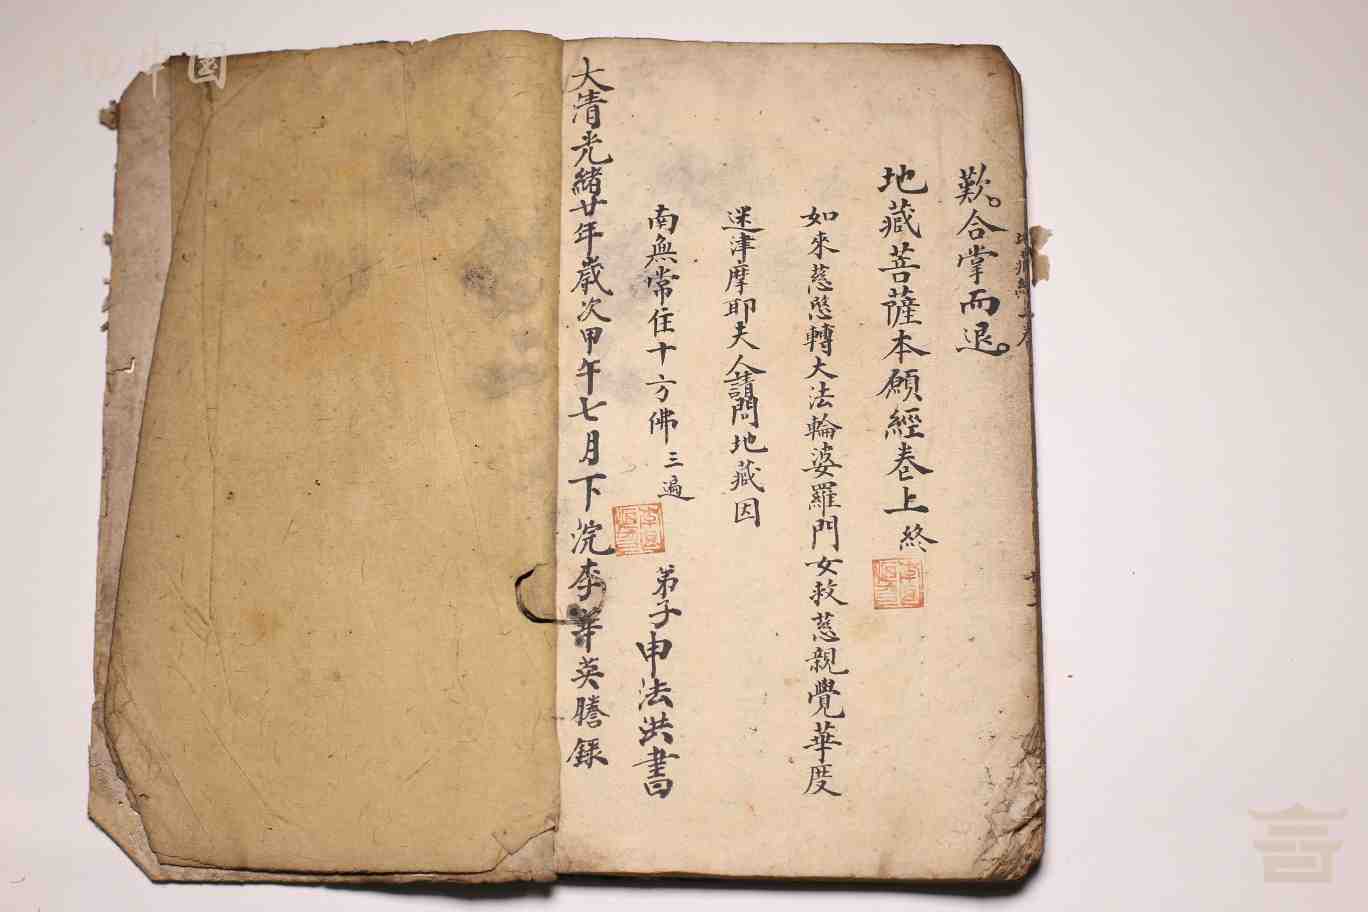 歎。合掌而退。
地藏菩薩本願經卷上 終
如來慈愍轉大法輪婆羅門女救慈親覺華度
迷津摩耶夫人請問地藏因
南無常住十方佛 三遍
弟子申法洪書
大清光緒廿年歲次甲午七月下浣李華英謄錄
中国